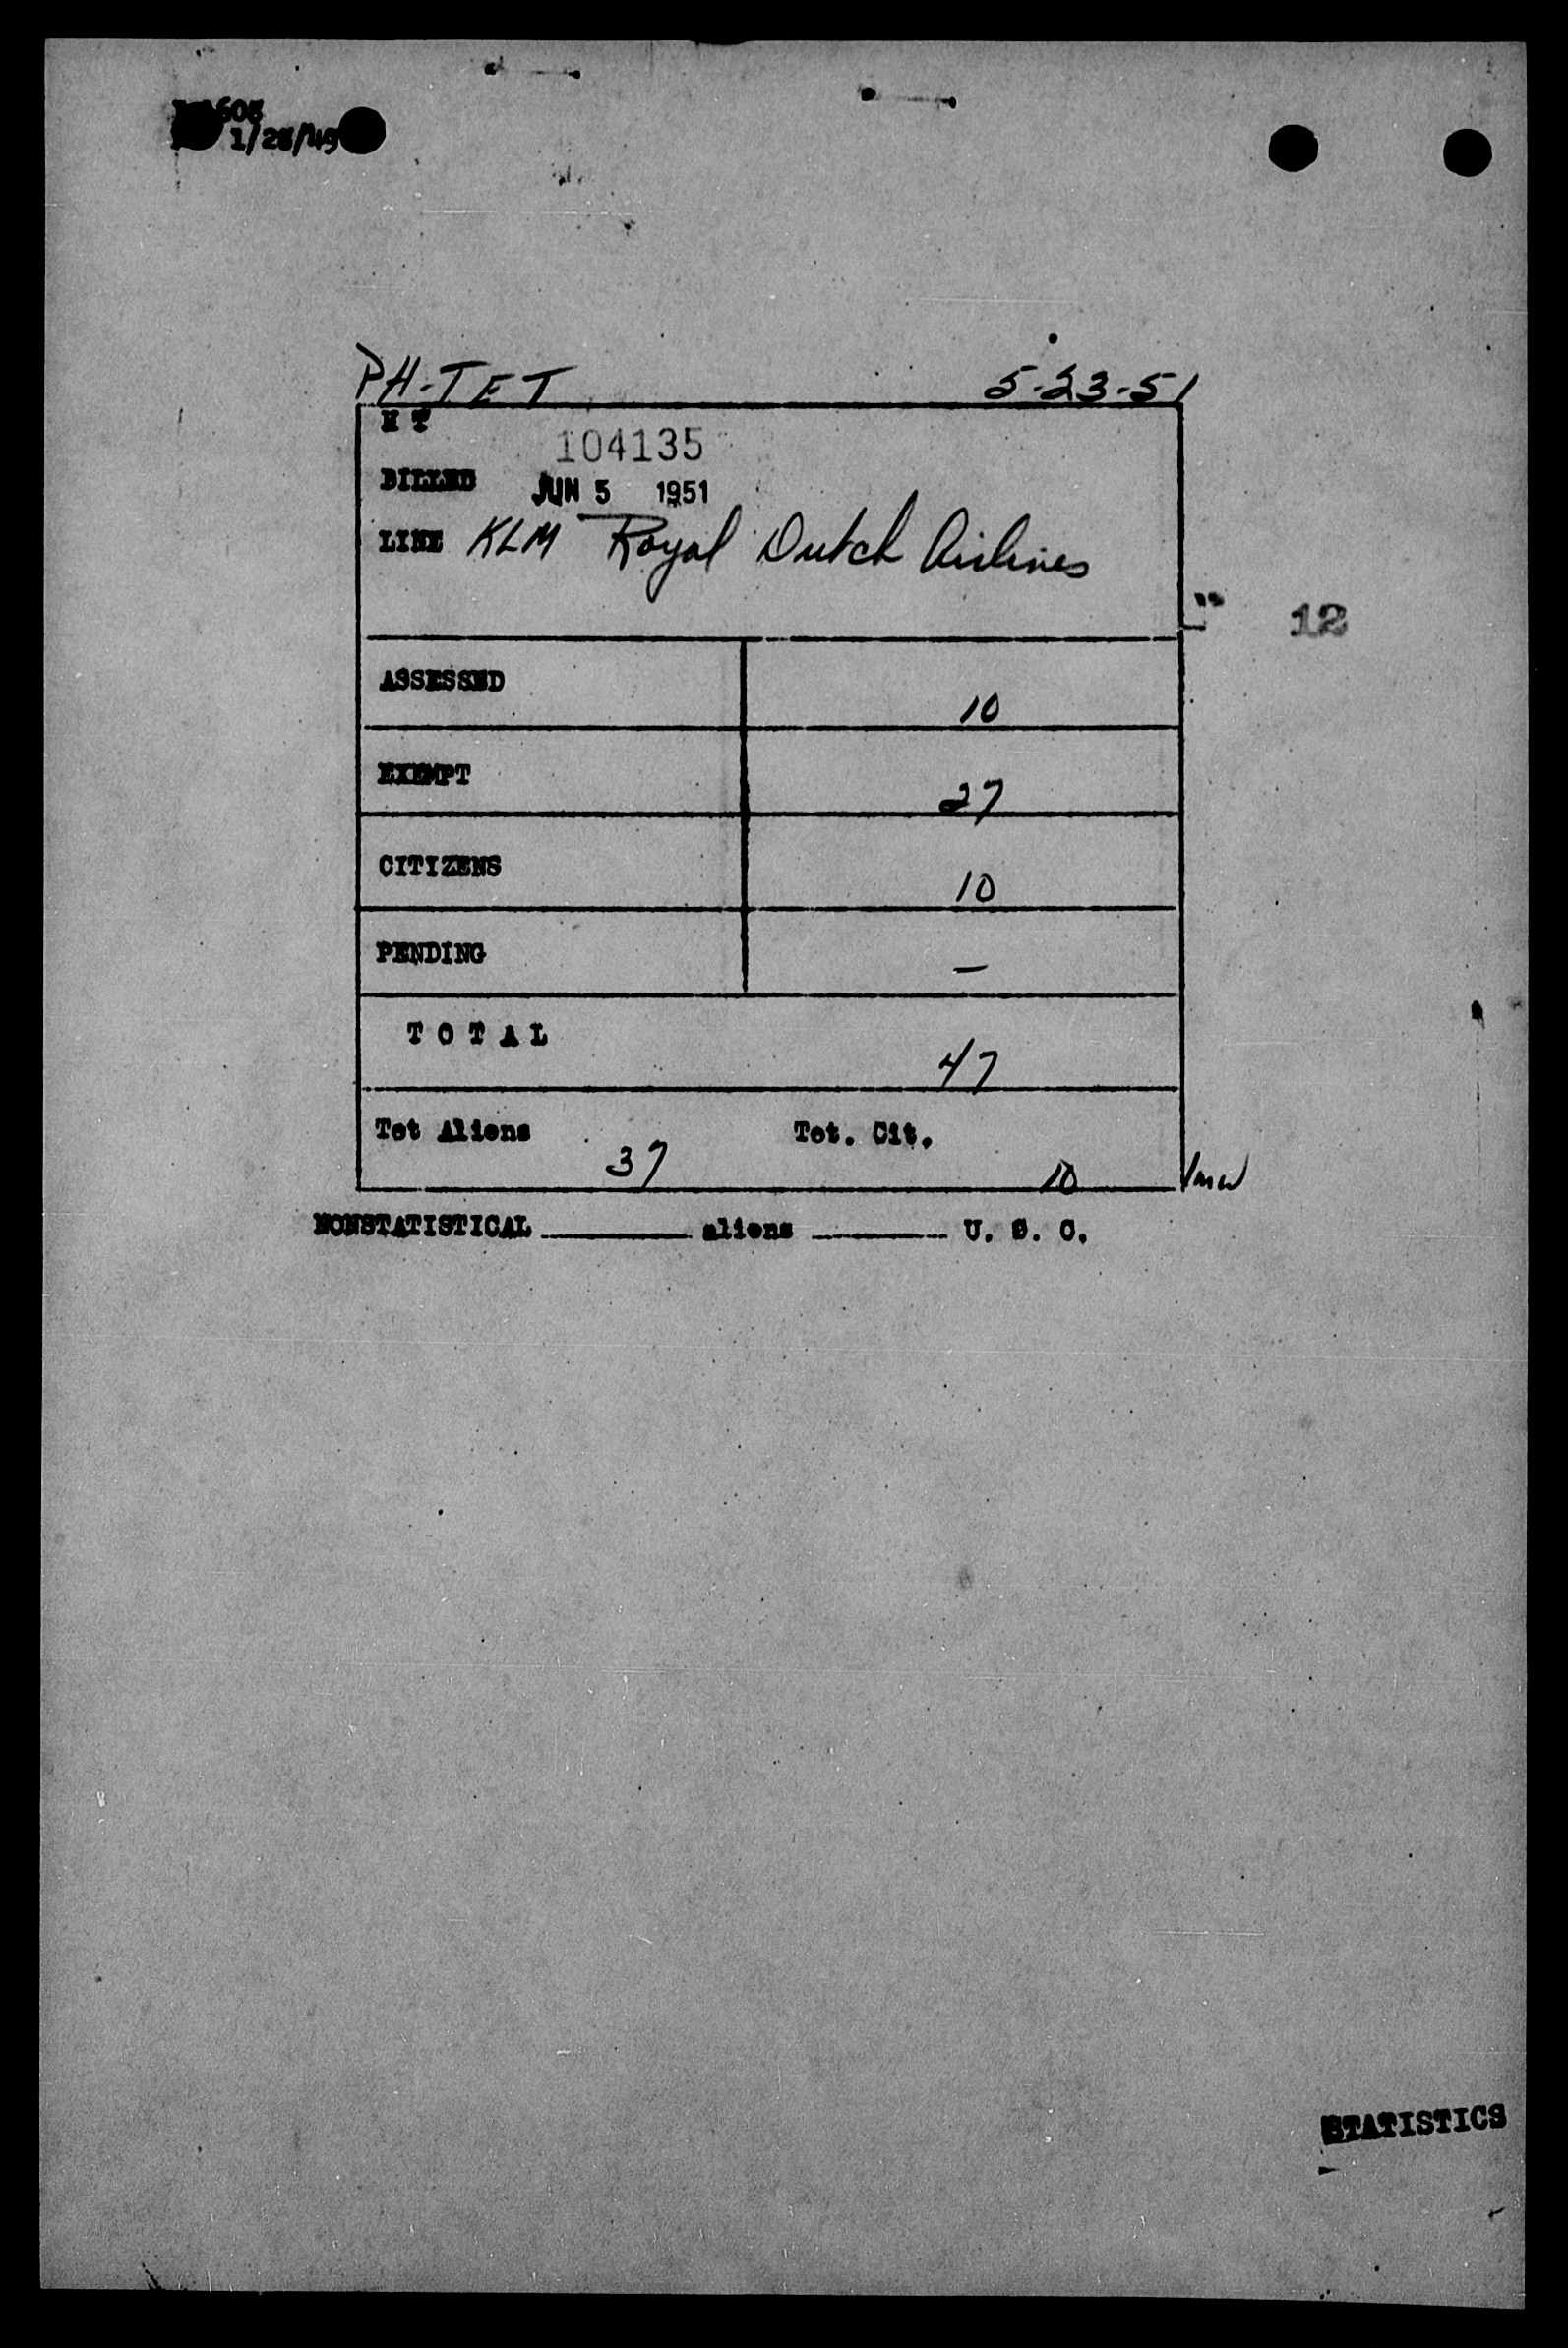 1/28/49
PH-TET 5-23-51
H T 104135
BILLED JUN 5 1951
LINE KLM Royal Dutch Airlines
12
ASSESSED 10
EXEMPT 27
CITIZENS 10
PENDING —
T O T A L 47
Tot Aliens 37 Tot. Cit. 10
NONSTATISTICAL ______ aliens ______ U. S. C.
STATISTICS